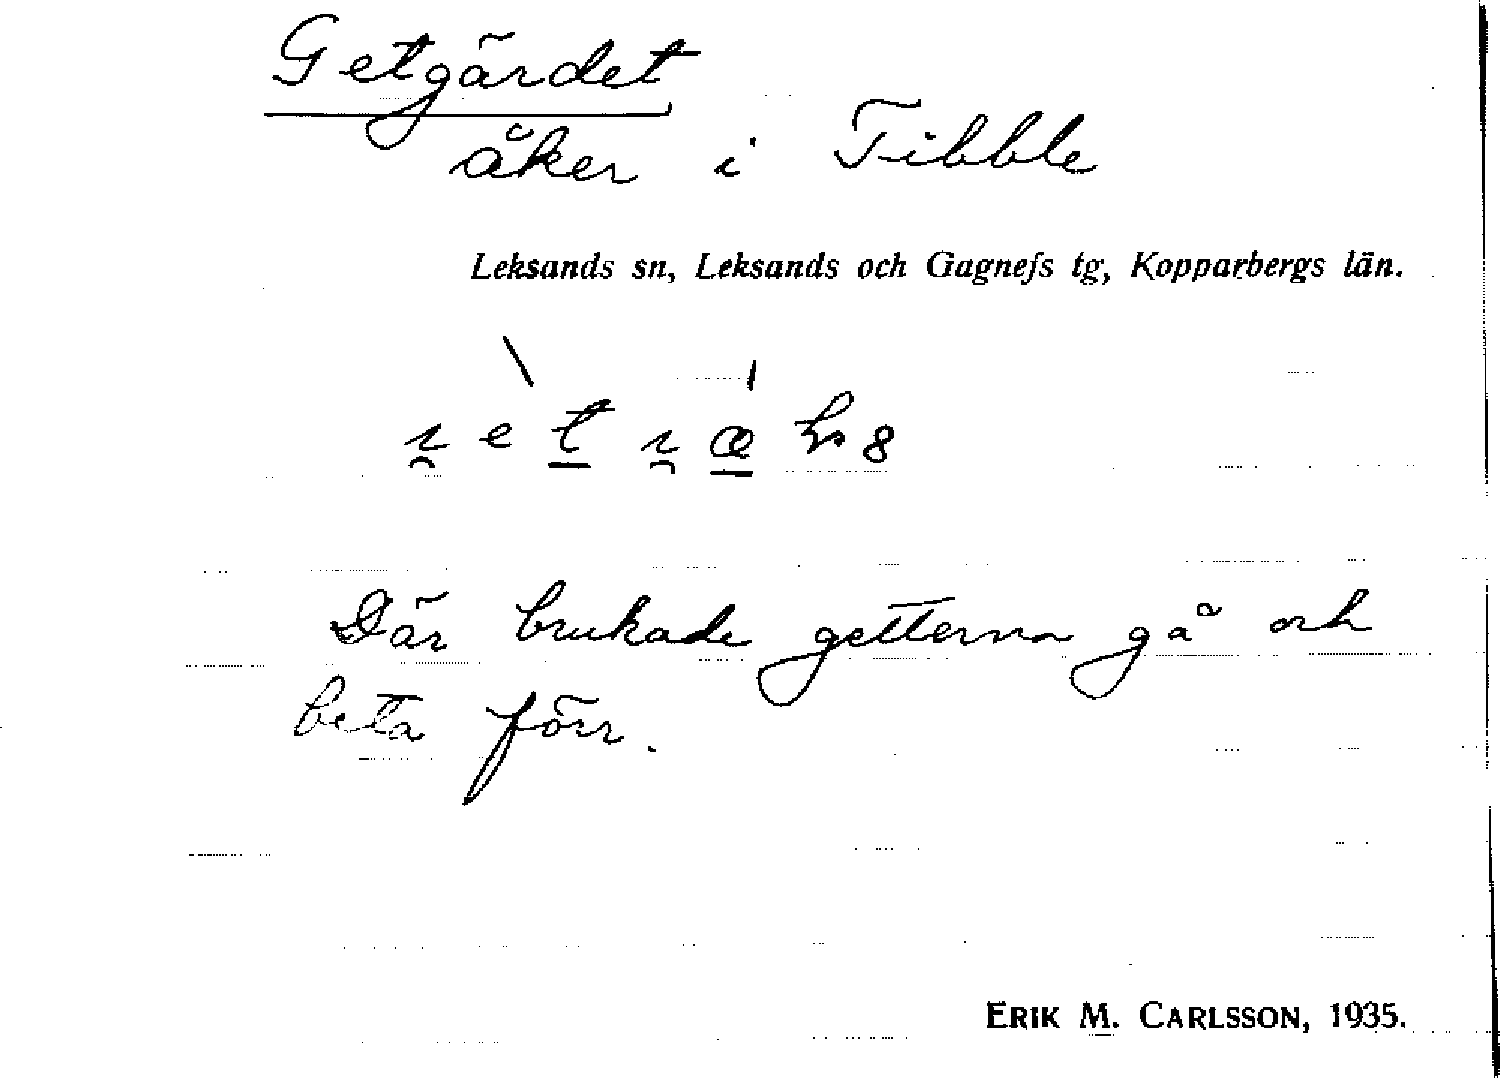 Getgärdet
åker i Tibble
Leksands sn, Leksands och Gagnefs tg, Kopparbergs län.
Där brukade getterna gå och
beta förr.
ERIK M. CARLSSON, 1935.